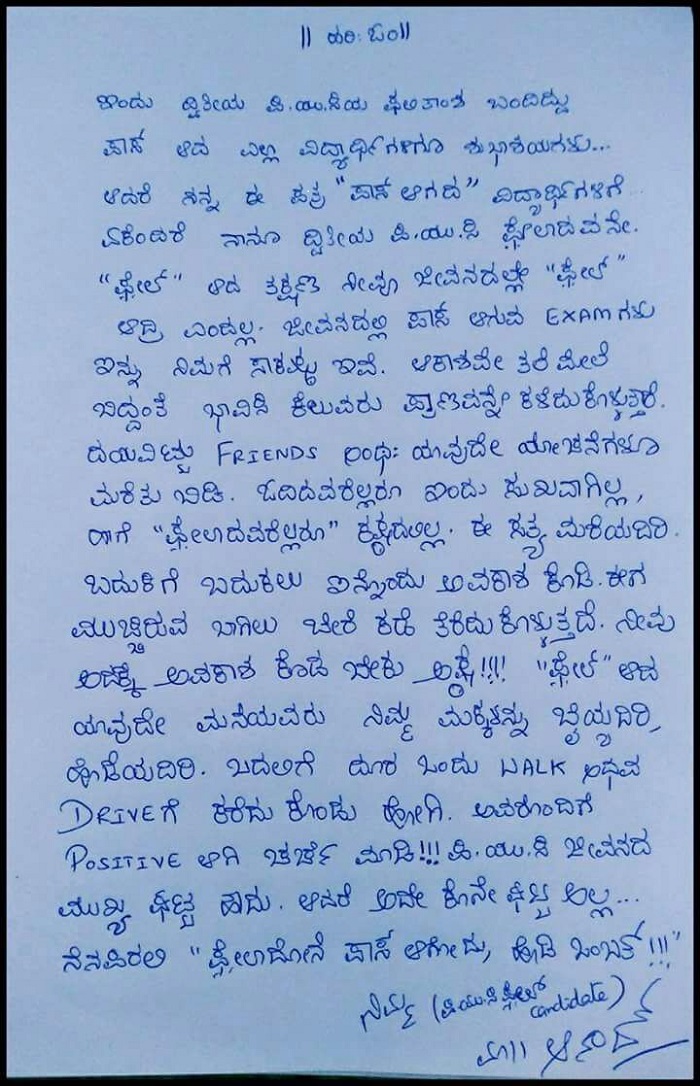 || ಹರಿಃ ಓಂ ||
ಇಂದು ದ್ವಿತೀಯ ಪಿ.ಯು.ಸಿಯ ಫಲಿತಾಂಶ ಬಂದಿದ್ದು
ಪಾಸ್ ಆದ ಎಲ್ಲ ವಿದ್ಯಾರ್ಥಿಗಳಿಗೂ ಶುಭಾಶಯಗಳು...
ಆದರೆ ನನ್ನ ಈ ಪತ್ರ "ಪಾಸ್ ಆಗದ" ವಿದ್ಯಾರ್ಥಿಗಳಿಗೆ
ಏಕೆಂದರೆ ನಾನೂ ದ್ವಿತೀಯ ಪಿ.ಯು.ಸಿ ಫ಼ೇಲಾದವನೇ.
"ಫ಼ೇಲ್" ಆದ ತಕ್ಷಣ ನೀವು ಜೀವನದಲ್ಲೇ "ಫ಼ೇಲ್"
ಆದ್ರಿ ಎಂದಲ್ಲ. ಜೀವನದಲ್ಲಿ ಪಾಸ್ ಆಗುವ EXAM ಗಳು
ಇನ್ನು ನಿಮಗೆ ಸಾಕಷ್ಟು ಇವೆ. ಆಕಾಶವೇ ತಲೆ ಮೇಲೆ
ಬಿದ್ದಂತೆ ಭಾವಿಸಿ ಕೆಲುವರು ಪ್ರಾಣವನ್ನೇ ಕಳೆದುಕೊಳ್ಳುತ್ತಾರೆ.
ದಯವಿಟ್ಟು FRIENDS ಅಂಥಃ ಯಾವುದೇ ಯೋಚನೆಗಳೂ
ಮರೆತು ಬಿಡಿ. ಓದಿದವರೆಲ್ಲರೂ ಇಂದು ಸುಖವಾಗಿಲ್ಲ,
ಹಾಗೆ "ಫ಼ೇಲಾದವರೆಲ್ಲರೂ" ಕಷ್ಟದಲಿಲ್ಲ. ಈ ಸತ್ಯ ಮರೆಯದಿರಿ.
ಬದುಕಿಗೆ ಬದುಕಲು ಇನ್ನೊಂದು ಅವಕಾಶ ಕೊಡಿ. ಈಗ
ಮುಚ್ಚಿರುವ ಬಾಗಿಲು ಬೇರೆ ಕಡೆ ತೆರೆದುಕೊಳ್ಳುತ್ತದೆ. ನೀವು
ಅದಕ್ಕೆ ಅವಕಾಶ ಕೊಡ ಬೇಕು ಅಷ್ಟೆ!!!! "ಫ಼ೇಲ್" ಆದ
ಯಾವುದೇ ಮನೆಯವರು ನಿಮ್ಮ ಮಕ್ಕಳನ್ನು ಬೈಯ್ಯದಿರಿ,
ಹೊಡೆಯದಿರಿ. ಬದಲಿಗೆ ದೂರ ಒಂದು WALK ಅಥವ
DRIVE ಗೆ ಕರೆದು ಕೊಂಡು ಹೋಗಿ. ಅವರೊಂದಿಗೆ
POSITIVE ಆಗಿ ಚರ್ಚೆ ಮಾಡಿ!!! ಪಿ.ಯು.ಸಿ ಜೀವನದ
ಮುಖ್ಯ ಘಟ್ಟ ಹೌದು. ಆದರೆ ಅದೇ ಕೊನೇ ಘಟ್ಟ ಅಲ್ಲ...
ನೆನಪಿರಲಿ "ಫ಼ೇಲಾದೋನೆ ಪಾಸ್ ಆಗೋದು, ಹೊಡಿ ಒಂಬತ್!!!"
ನಿಮ್ಮ (ಪಿ.ಯು.ಸಿ ಫ಼ೇಲ್ candidate)